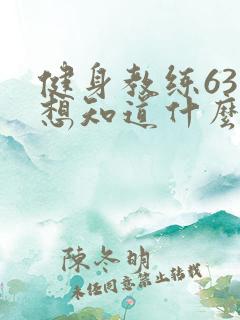 健身教练63
想知道什麼
陳冬明
未任同意禁止轉載